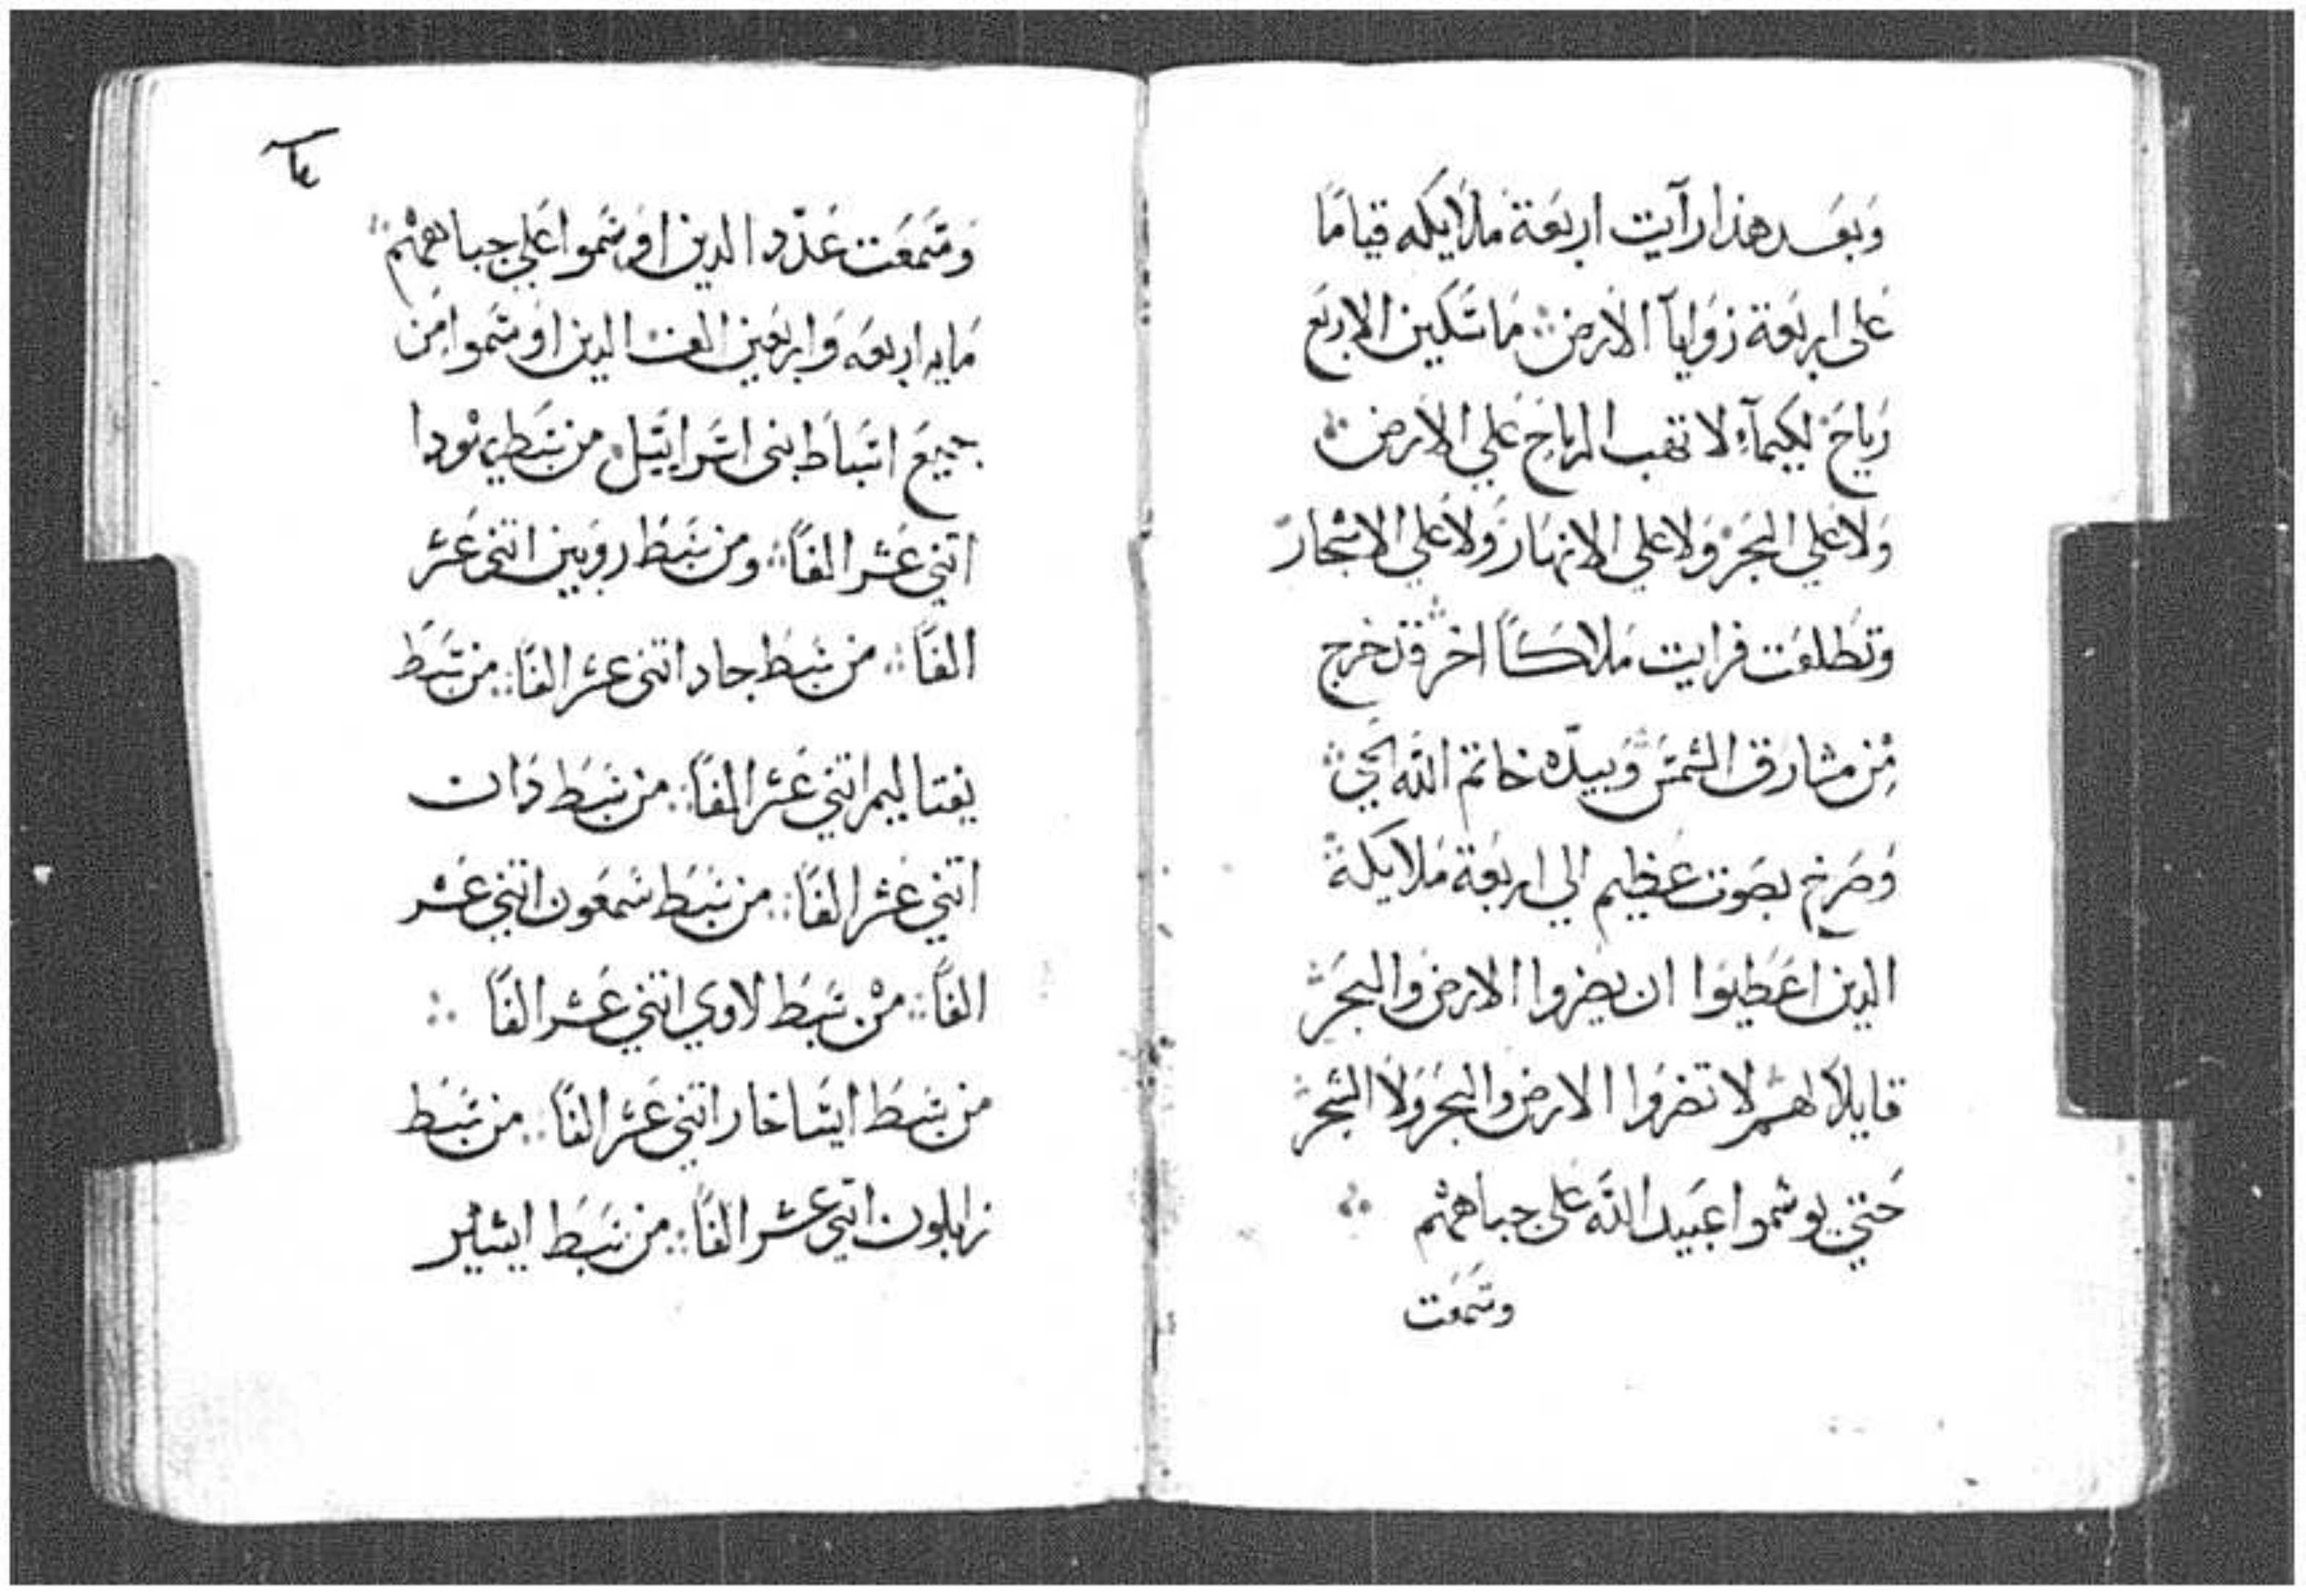 وبعد هذا رآيت اربعة ملايكه قياما
على اربعة زوايآ الارض ماسكين الاربع
رياح لكيمآ لا تهب الرياح علي الارض
ولا علي البحر ولا علي الانهار ولا علي الاشجار
وتطلعت فرايت ملاكا اخر قد خرج
من مشارق الشمس وبيده خاتم الله الحي
وصرخ بصوت عظيم الي اربعة ملايكة
الدين اعطيوا ان يضروا الارض والبحر
قايلا لهم لا تضروا الارض والبحر ولا الشجر
حتي يوشموا عبيد الله على جباههم
وسمعت
وسمعت عدد الدين اوشموا علي جباههم
مايه اربعه واربعين الف الدين اوشموا من
جميع اسباط بني اسراييل من سبط يهودا
اتني عشر الفا ومن سبط روبين اتني عشر
الفا من سبط جاد اتني عشر الفا من سبط
يفتاليم اتني عشر الفا من سبط دان
اتني عشر الفا من سبط شمعون اتني عشر
الفا من سبط لاوي اتني عشر الفا
من سبط ايساخار اتني عشر الفا من سبط
زابلون اتني عشر الفا من سبط ايشاير